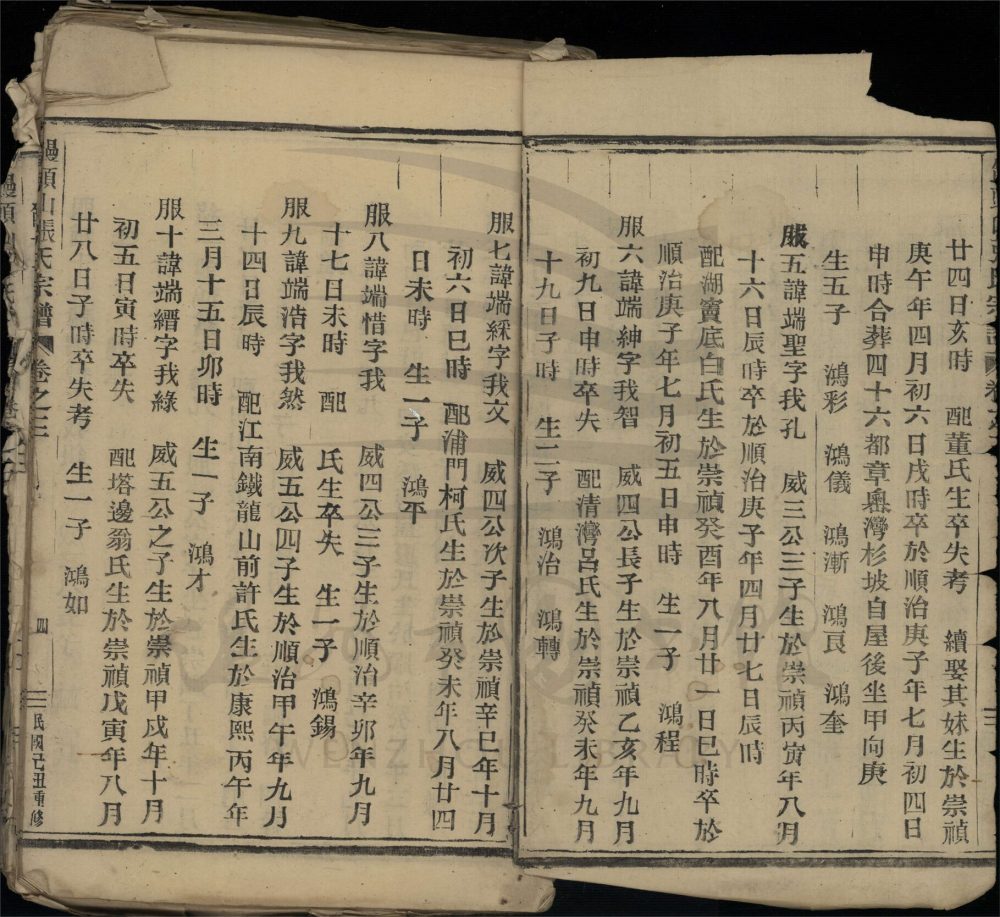 廿四日亥時 配董氏生卒失考 續娶其妹生於崇禎
庚午年四月初六日戌時卒於順治庚子年七月初四日
申時合葬四十六都章嶴灣杉坡自屋後坐甲向庚
生五子 鴻彩 鴻儀 鴻漸 鴻良 鴻奎
服五諱端聖字我孔 威三公三子生於崇禎丙寅年八月
十六日辰時卒於順治庚子年四月廿七日辰時
配湖竇底白氏生於崇禎癸酉年八月廿一日巳時卒於
順治庚子年七月初五日申時 生一子 鴻程
服六諱端紳字我智 威四公長子生於崇禎乙亥年九月
初九日申時卒失 配清灣呂氏生於崇禎癸未年九月
十九日子時 生二子 鴻治 鴻轉
服七諱端綵字我文 威四公次子生於崇禎辛巳年十月
初六日巳時 配浦門柯氏生於崇禎癸未年八月廿四
日未時 生一子 鴻平
服八諱端惜字我 威四公三子生於順治辛卯年九月
十七日未時 配 氏生卒失 生一子 鴻錫
服九諱端浩字我然 威五公四子生於順治甲午年九月
十四日辰時 配江南鐵龍山前許氏生於康熙丙午年
三月十五日卯時 生一子 鴻才
服十諱端縉字我綠 威五公之子生於崇禎甲戌年十月
初五日寅時卒失 配塔邊翁氏生於崇禎戊寅年八月
廿八日子時卒失考 生一子 鴻如
饅頭山張氏宗譜 卷之三 四 民國己丑重修
饅頭
WENZHOU LIBRARY